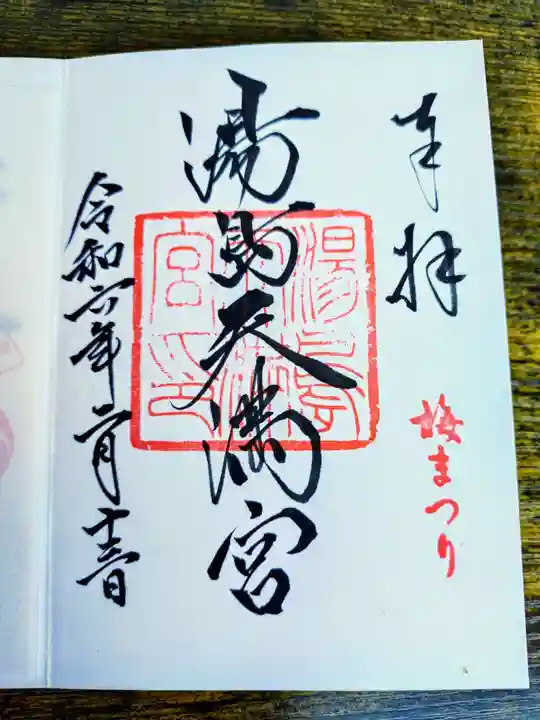 奉拝
梅まつり
湯島天満宮
湯島天満宮印
令和六年二月十二日